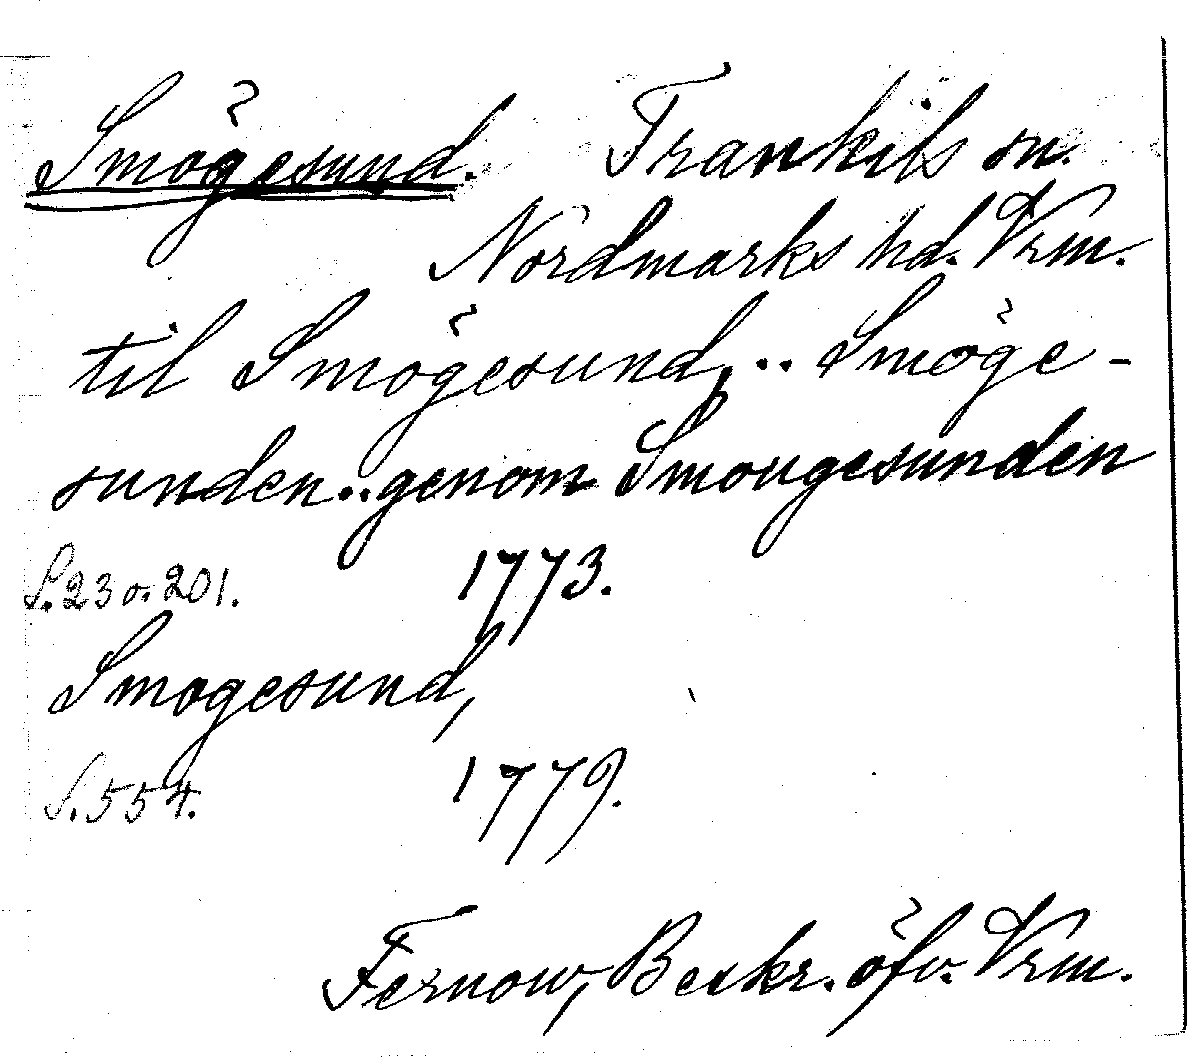 Smögesund. Trankils sn.
Nordmarks hd. Vrm.
til Smögesund, .. Smöge-
sunden .. genom Smougesunden
S. 23 o. 201. 1773.
Smogesund,
S. 554. 1779.
Fernow, Beskr. öfv. Vrm.